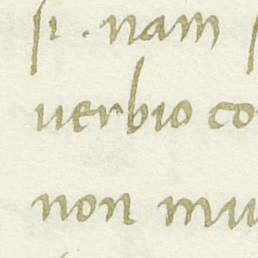 si. nam
verbio co
non mu